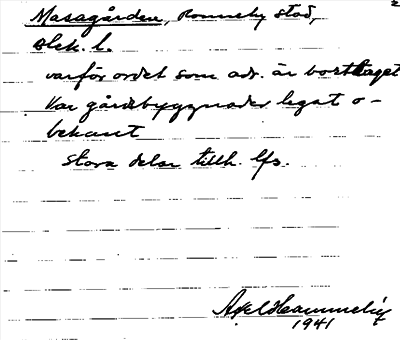 Masagården, Ronneby stad,
Blek. l.
varför ordet som adr. är borttaget
Var gårdsbyggnader legat o-
bekant
Stora delar tillh. lfs.
Axel Hammelig
1941